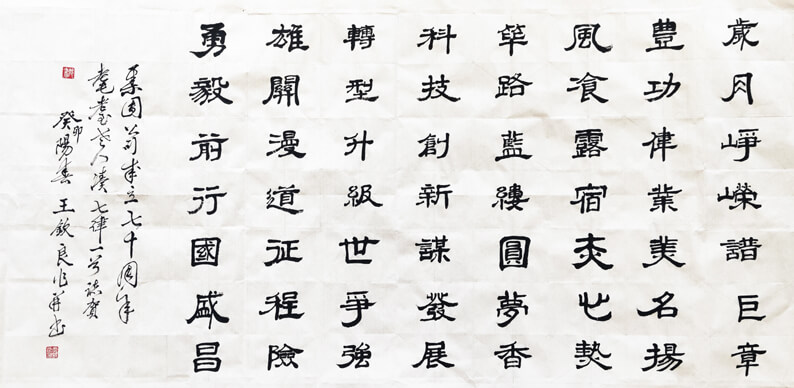 歲月崢嶸譜巨章
豊功偉業美名揚
風飡露宿赤心熱
篳路藍縷圓夢香
科技創新謀發展
轉型升級世爭強
雄關漫道征程險
勇毅前行國盛昌
集团公司成立七十周年
耄耋老人湊七律一首誌賀
癸卯陽春 王欽良作并書